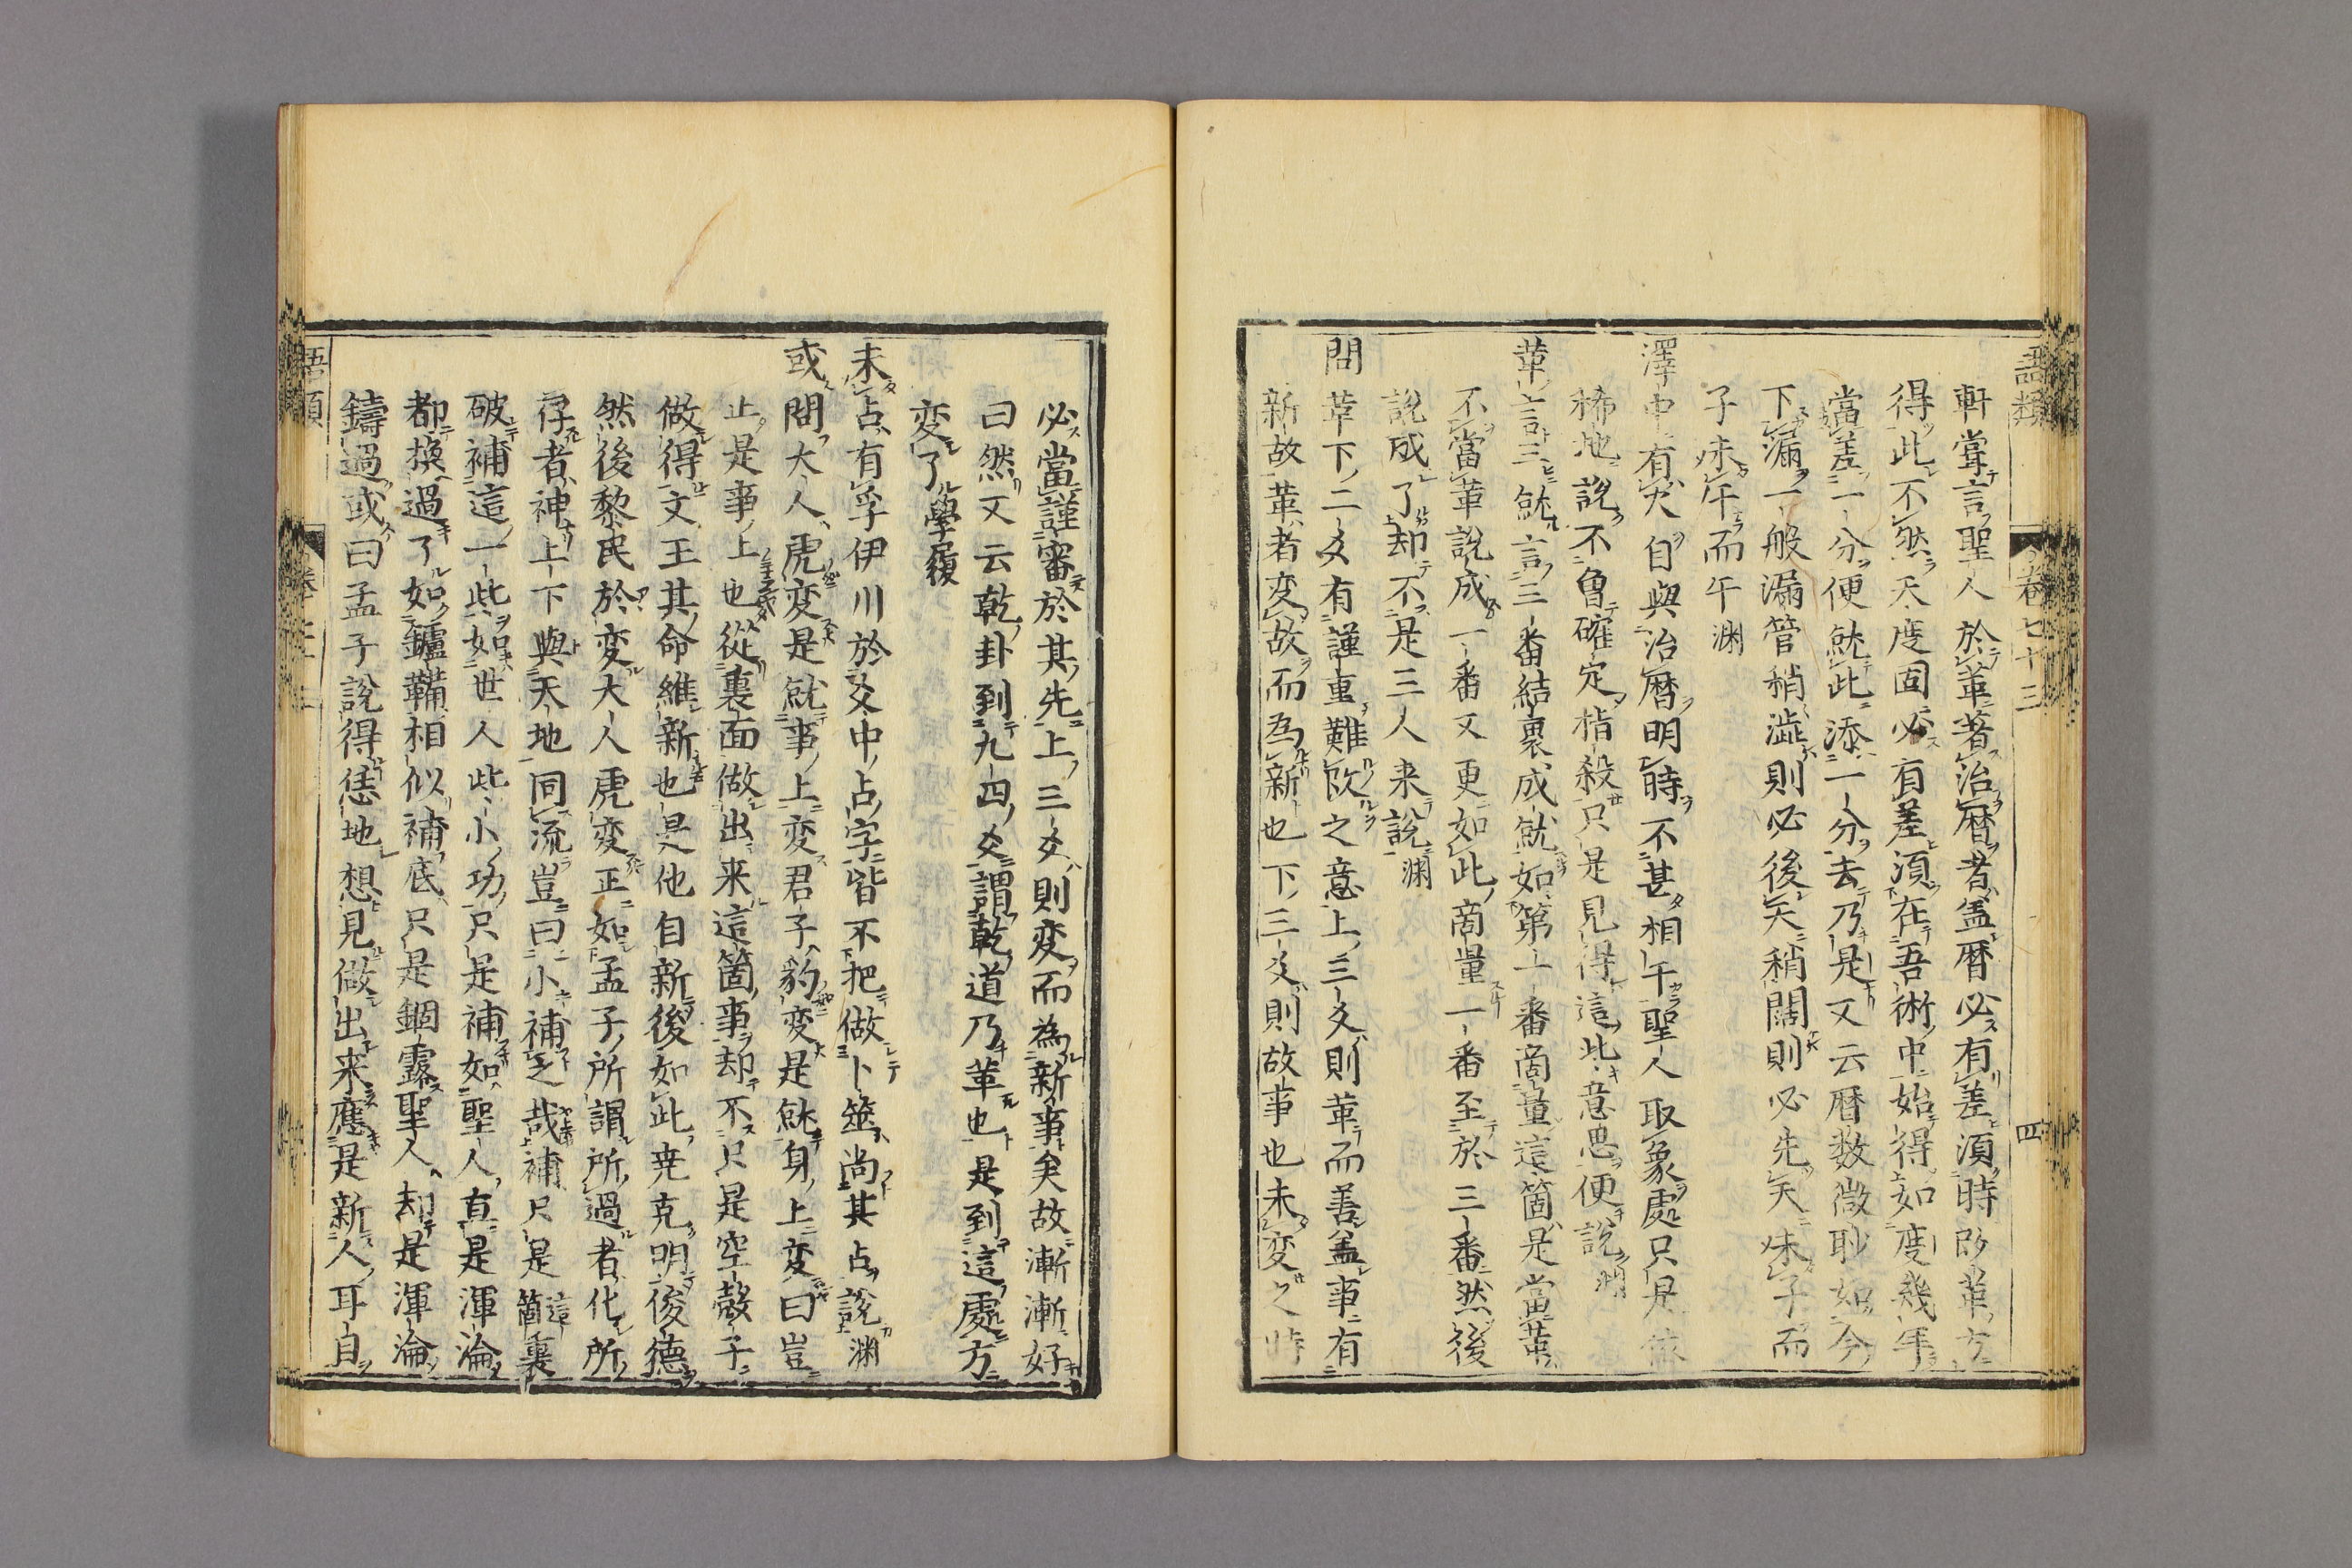 語類 卷七十三 四
軒嘗言聖人於革著治曆者盖曆必有差須時改革方
得此不然天度固必有差須在吾術中始得如度幾年
當差一分便就此添一分去乃是又云曆数微眇如今
下漏一般漏管稍澁則必後天稍闊則必先天未子而
子未午而午淵
澤中有火自與治曆明時不甚相干聖人取象處只是依
稀地說不曾確定指殺只是見得這些意思便說淵
革言三就言三番結裏成就如第一番商量這箇是當革
不當革說成一番又更如此商量一番至於三番然後
說成了却不是三人来說淵
問革下二爻有謹重難改之意上三爻則革而善盖事有
新故革者変故而為新也下三爻則故事也未変之時
必當謹審於其先上三爻則変而為新事矣故漸漸好
曰然又云乾卦到九四爻謂乾道乃革也是到這處方
変了學履
未占有孚伊川於爻中占字皆不把做卜筮尚其占說淵
或問大人虎変是就事上変君子豹変是就身上変曰豈
止是事上也從裏面做出来這箇事却不只是空殼子
做得文王其命維新也是他自新後如此尭克明俊德
然後黎民於変大人虎変正如孟子所謂所過者化所
存者神上下與天地同流豈曰小補之哉補只是這箇裏
破補這一些如世人些小功只是補如聖人直是渾淪
都換過了如鑪鞴相似補底只是錮露聖人却是渾淪
鑄過或曰孟子說得恁地想見做出来應是新人耳自
語類 卷七十三